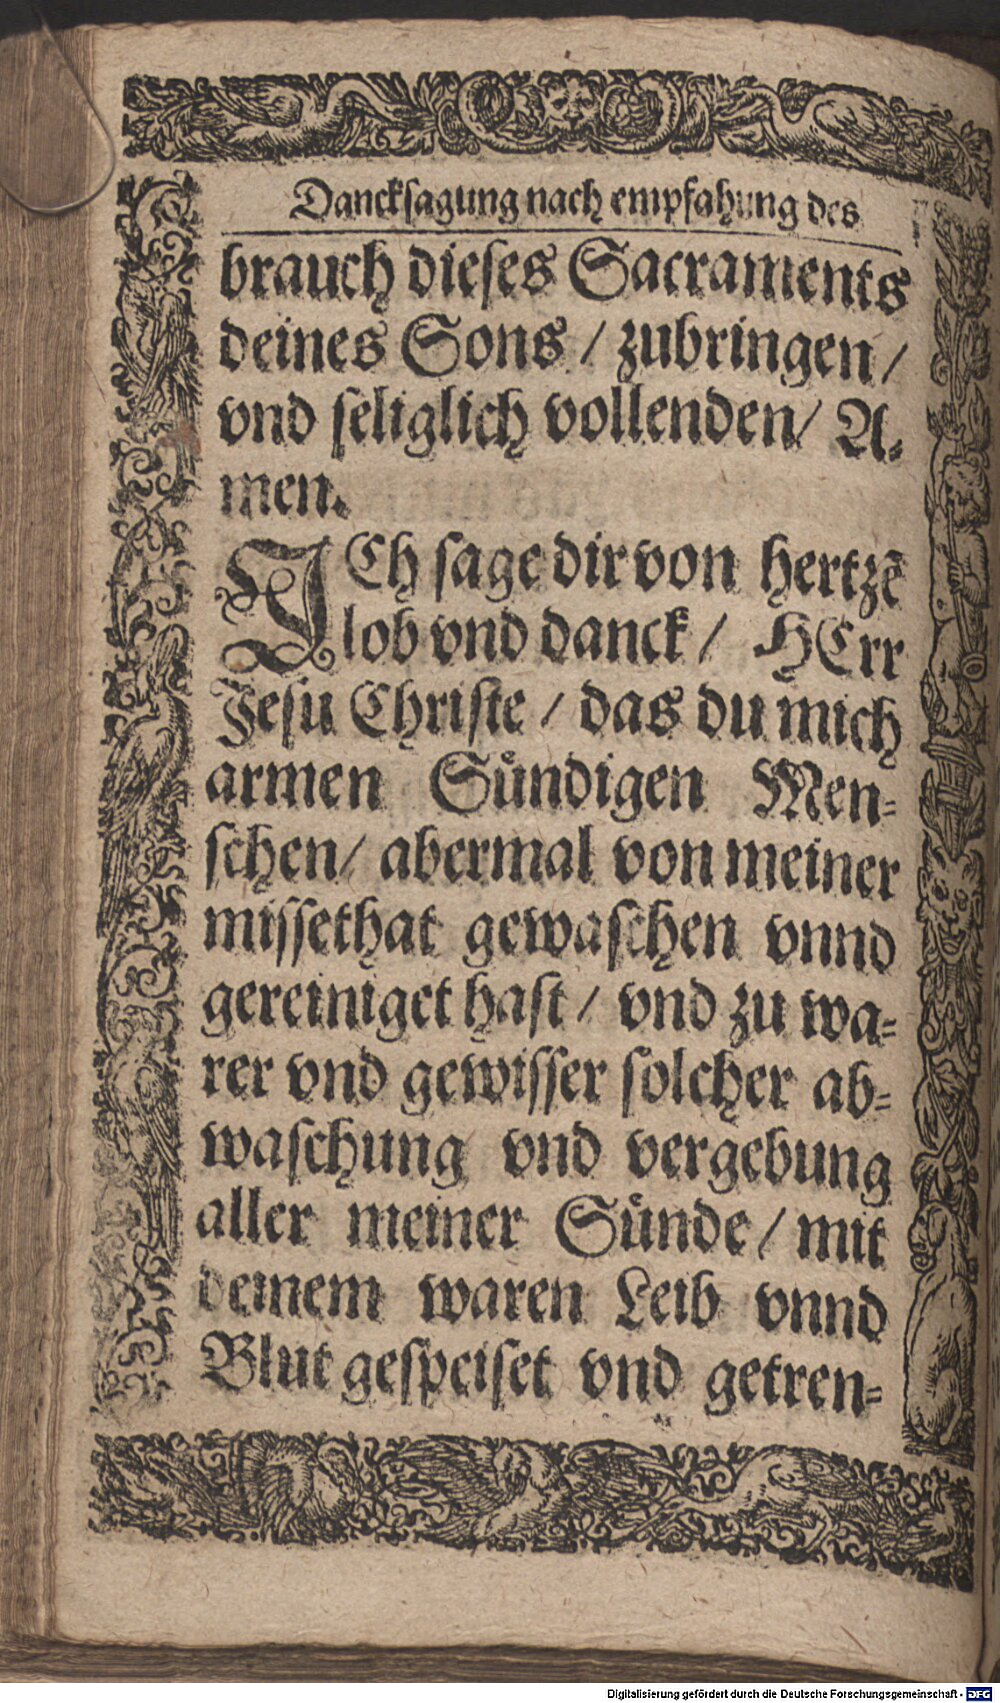 Dancksagung nach empfahung des
brauch dieses Sacraments
deines Sons / zubringen /
vnd seliglich vollenden / A-
men.
ICh sage dir von hertzẽ
lob vnd danck / HErr
Jesu Christe / das du mich
armen Sůndigen Men-
schen / abermal von meiner
missethat gewaschen vnnd
gereiniget hast / vnd zu wa-
rer vnd gewisser solcher ab-
waschung vnd vergebung
aller meiner Sůnde / mit
deinem waren Leib vnnd
Blut gespeiset vnd getren-
Digitalisierung gefördert durch die Deutsche Forschungsgemeinschaft - DFG